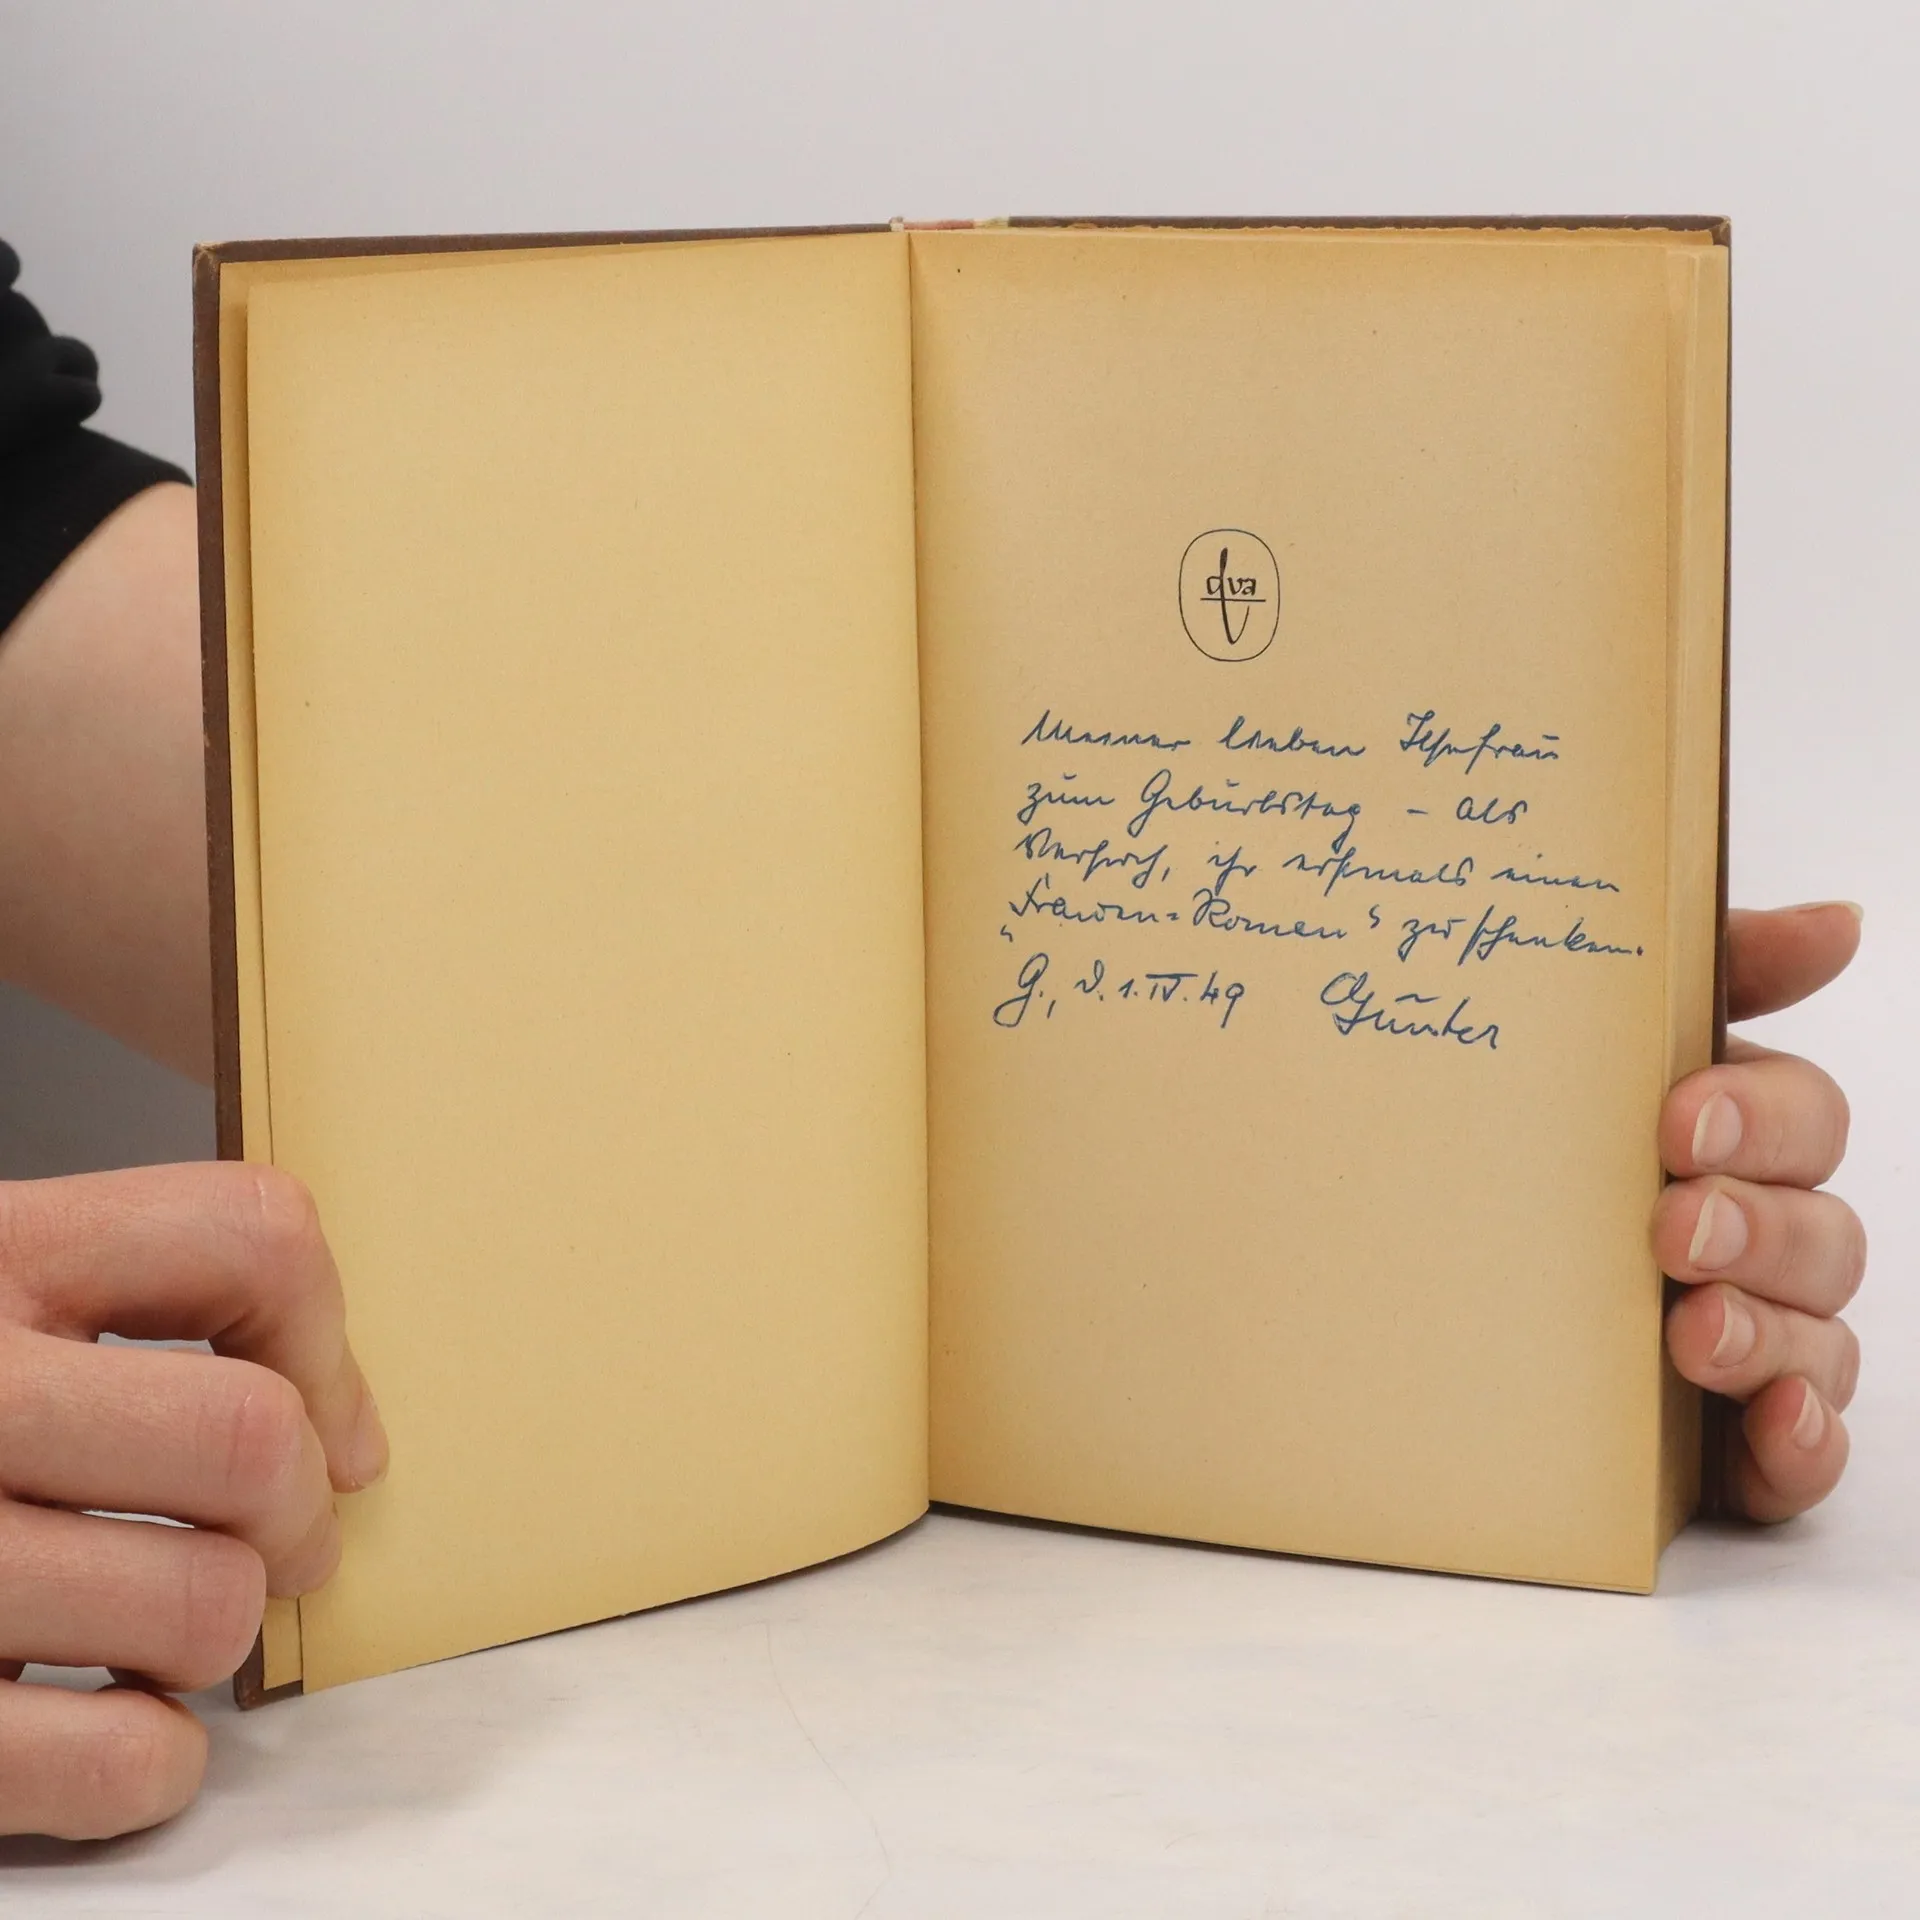 dva
Meiner lieben Ilsefrau
zum Geburtstag - als
Versuch, ihr erstmals einen
„Frauen=Roman“ zu schenken.
G., d. 1.IV.49 Günter